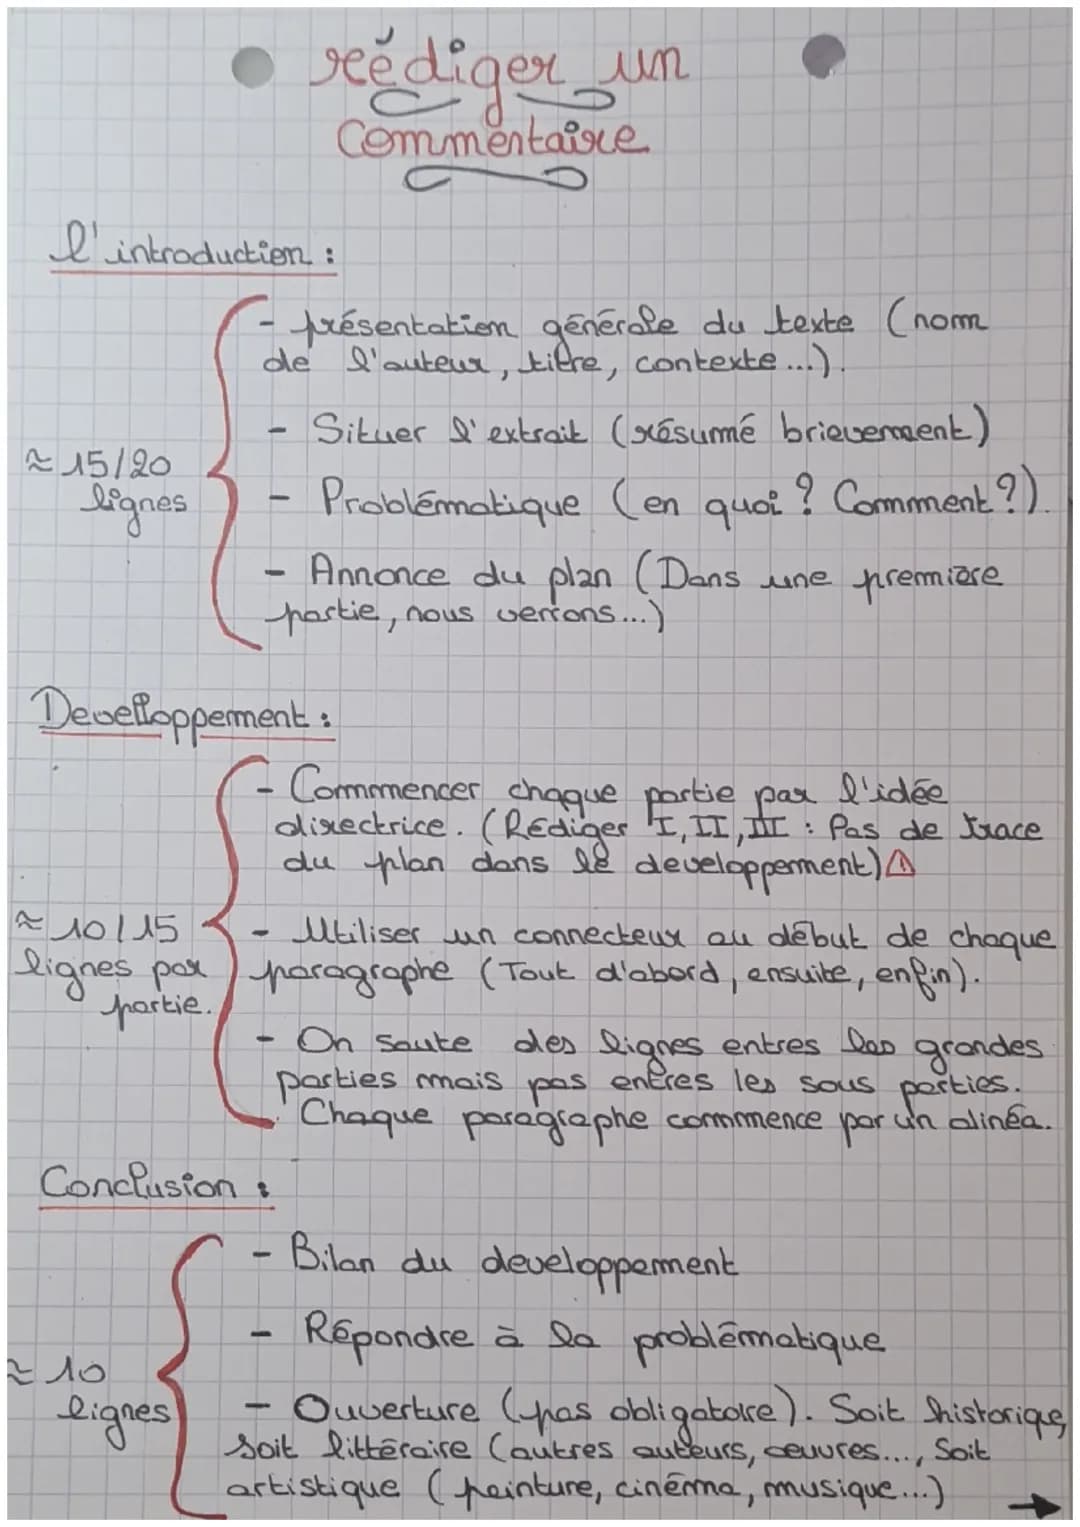 rédiger un
Commentaire
l'introduction :
- présentation générale du texte (nom
de l'auteur, titre, contexte...).
- Situer l'extrait (résumé brievement)
≈ 15/20
lignes
- Problématique (en quoi ? Comment ?).
- Annonce du plan (Dans une première
partie, nous verrons...)
Develloppement :
- Commencer chaque partie par l'idée
directrice. (Rédiger I, II, III : Pas de trace
du plan dans le developpement) ⚠
≈ 10/15
lignes par
partie.
- Utiliser un connecteur au début de chaque
paragraphe (Tout d'abord, ensuite, enfin).
- On saute des lignes entres les grandes
parties mais pas entres les sous parties.
Chaque paragraphe commence par un alinéa.
Conclusion :
- Bilan du developpement
- Répondre à la problématique
≈ 10
lignes
- Ouverture (pas obligatoire). Soit historique,
soit littéraire (autres auteurs, oeuvres..., Soit
artistique (peinture, cinéma, musique...)
→